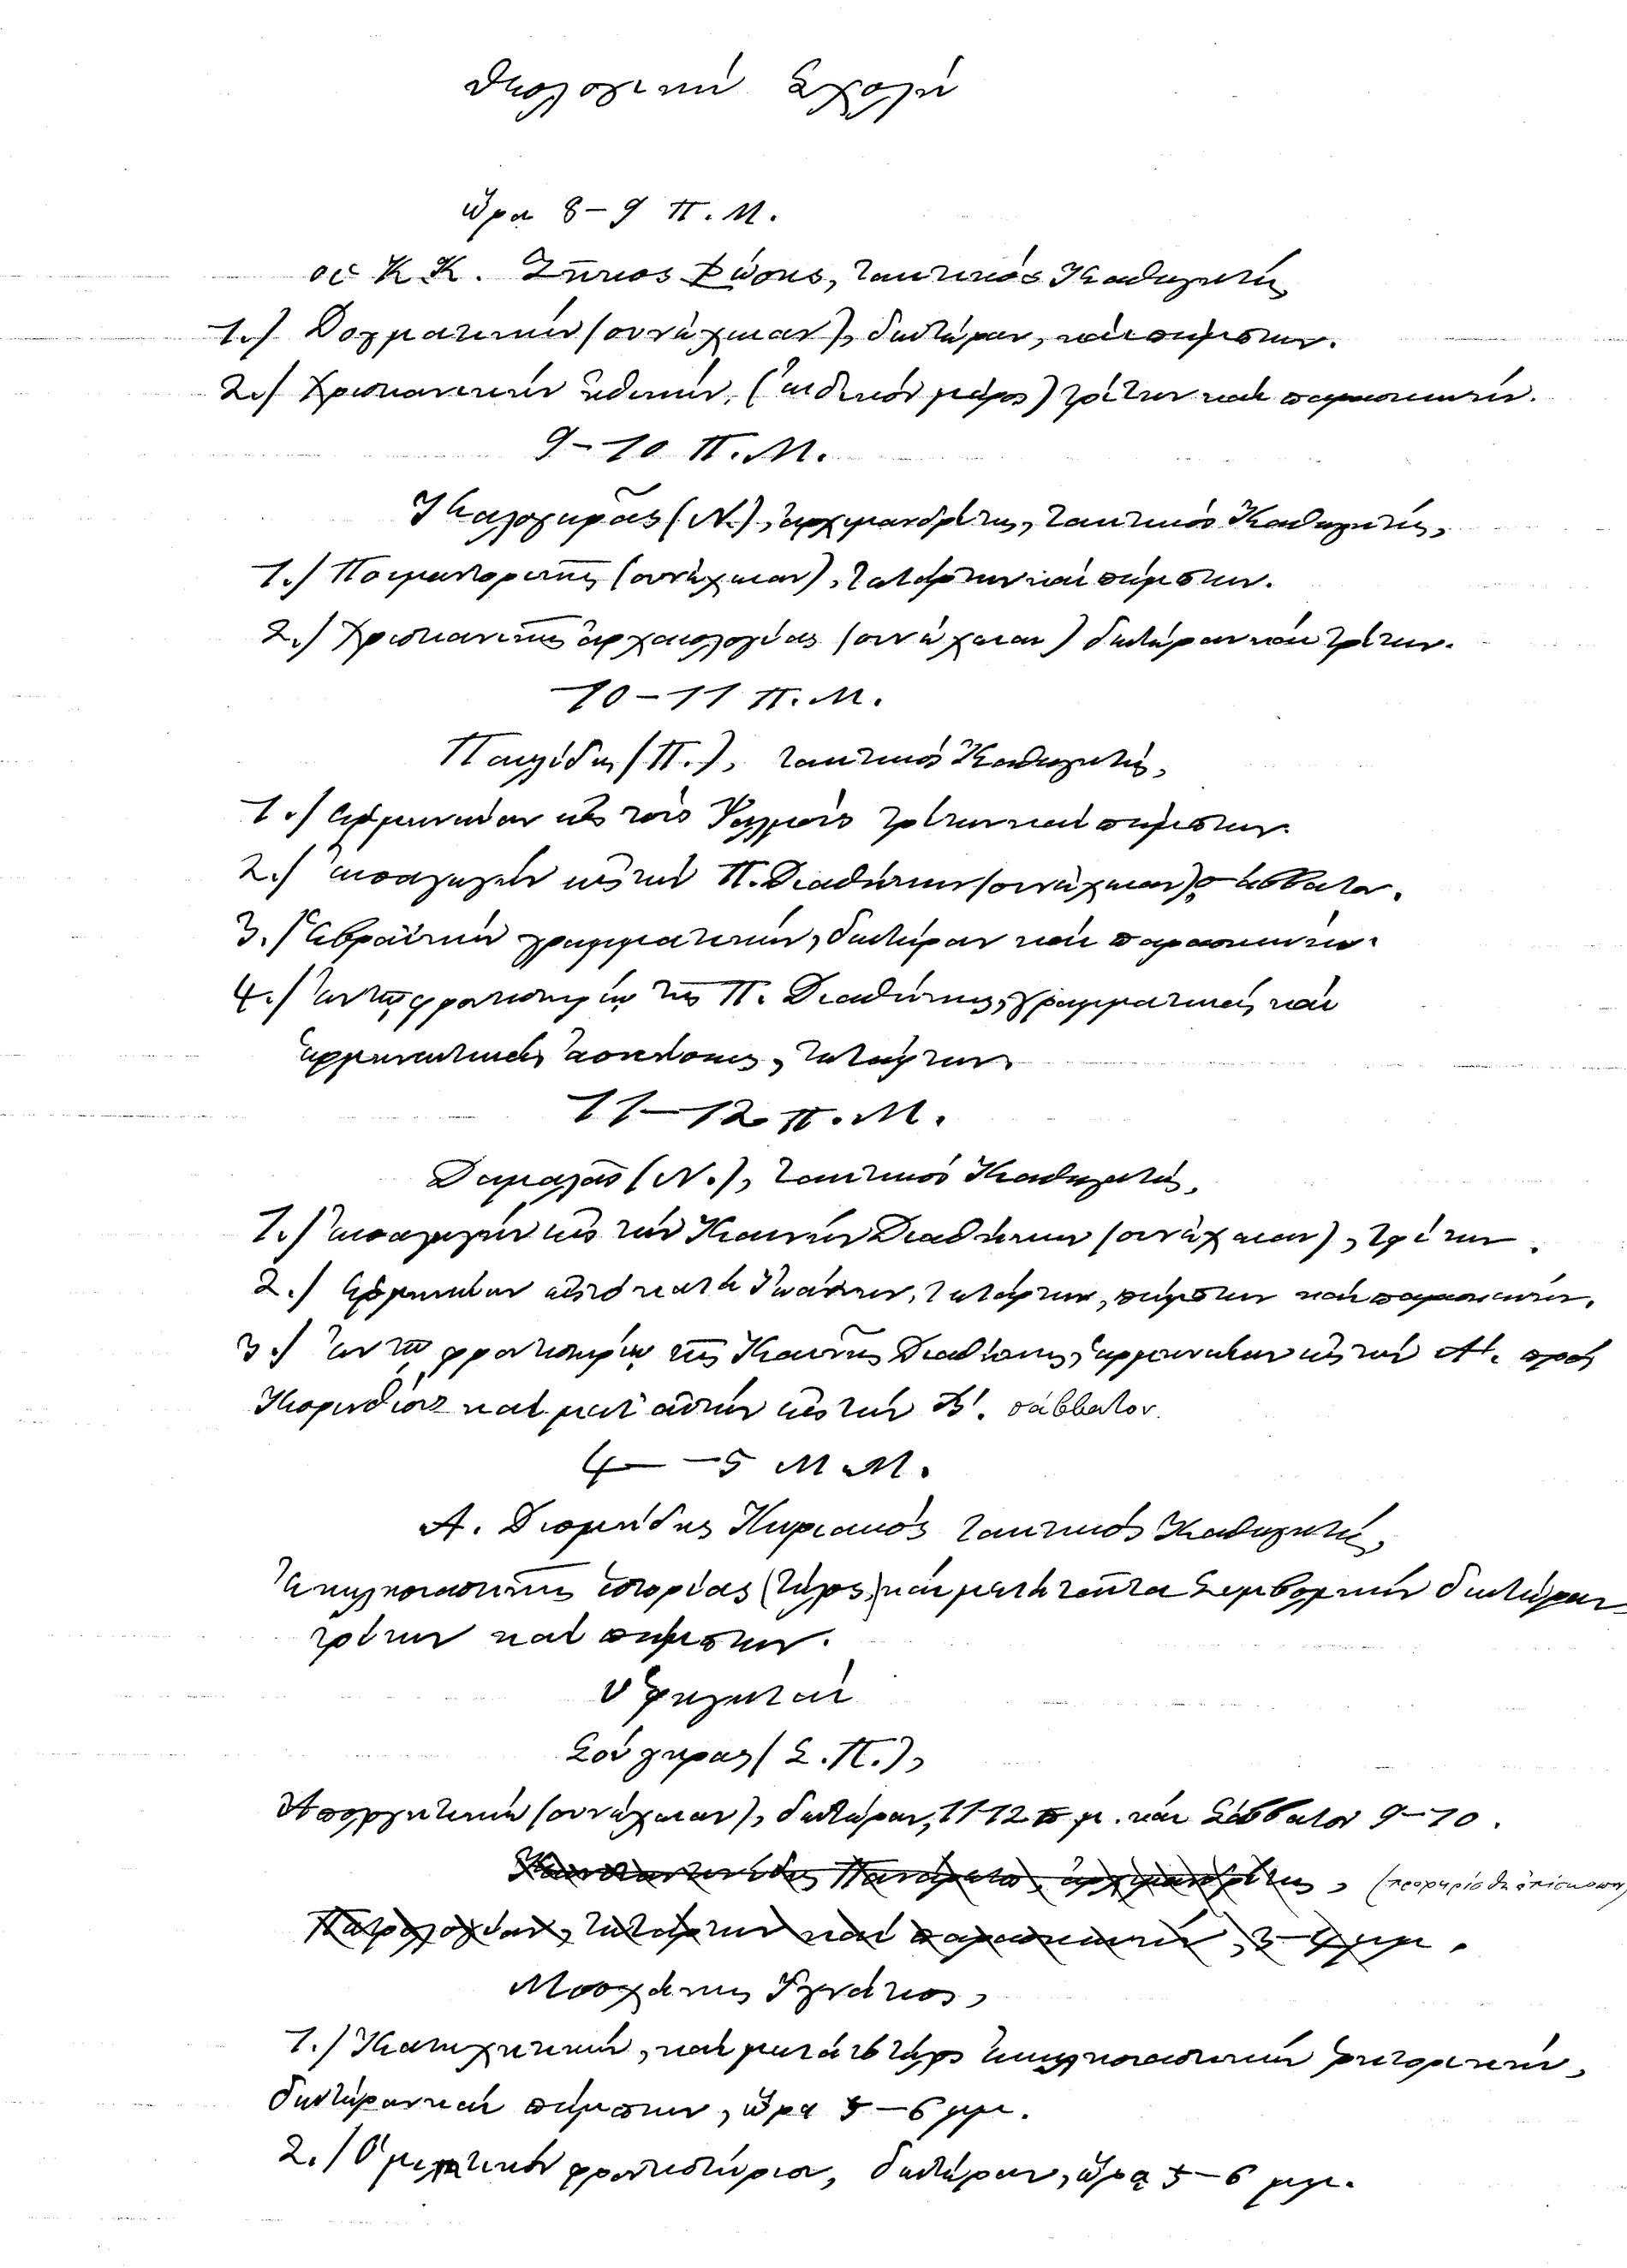 Θεολογική Σχολή
ὥρα 8–9 Π.Μ.
οἱ Κ Κ. Ζῆκος Ῥώσης, τακτικός Καθηγητής
1./ Δογματικήν (συνέχειαν), δευτέραν, καί πέμπτην.
2./ Χριστιανικήν ἠθικήν, (εἰδικόν μέρος) τρίτην καί παρασκευήν.
9–10 Π.Μ.
Καλογερᾶς (Ν.), ἀρχιμανδρίτης, τακτικός Καθηγητής,
1./ Ποιμαντορικῆς (συνέχειαν), τετάρτην καί πέμπτην.
2./ Χριστιανικῆς ἀρχαιολογίας (συνέχειαν) δευτέραν καί τρίτην.
10–11 Π.Μ.
Παυλίδης (Π.), τακτικός Καθηγητής,
1./ Ἑρμηνείαν εἰς τούς Ψαλμούς τρίτην καί πέμπτην.
2./ Εἰσαγωγήν εἰς τήν Π. Διαθήκην (συνέχειαν), σάββατον.
3./ Ἑβραϊκήν γραμματικήν, δευτέραν καί παρασκευήν.
4./ Ἐν τῷ φροντιστηρίῳ τῆς Π. Διαθήκης, γραμματικάς καί
ἑρμηνευτικάς ἀσκήσεις, τετάρτην.
11–12 Π.Μ.
Δαμαλᾶς (Ν.), τακτικός Καθηγητής,
1./ Εἰσαγωγήν εἰς τήν Καινήν Διαθήκην (συνέχειαν), τρίτην.
2./ Ἑρμηνείαν εἰς τό κατά Ἰωάννην, τετάρτην, πέμπτην καί παρασκευήν.
3./ Ἐν τῷ φροντιστηρίῳ τῆς Καινῆς Διαθήκης, ἑρμηνείαν εἰς τήν Α΄. πρός
Κορινθίους καί μετ' αὐτήν εἰς τήν Β΄. σάββατον.
4–5 Μ.Μ.
Α. Διομήδης Κυριακός τακτικός Καθηγητής,
Ἐκκλησιαστικῆς ἱστορίας (τέλος) καί μετά ταῦτα Συμβολικήν δευτέραν
τρίτην καί πέμπτην.
Ὑφηγηταί
Σούγκρας (Σ.Π.),
Ἀπολογητικήν (συνέχειαν), δευτέραν, 11-12 π.μ. καί Σάββατον 9–10.
Κωνσταντινίδης Πανάρετος, ἀρχιμανδρίτης, (προεχειρίσθη ἐπίσκοπος)
Πατρολογίαν, τετάρτην καί παρασκευήν, 3–4 μμ.
Μοσχάκης Ἰγνάτιος,
1./ Κατηχητικήν, καί μετά τό τέλος Ἐκκλησιαστικήν ῥητορικήν,
δευτέραν καί πέμπτην, ὥρα 5–6 μμ.
2./ Ὁμιλητικόν φροντιστήριον, δευτέραν, ὥρα 5–6 μμ.